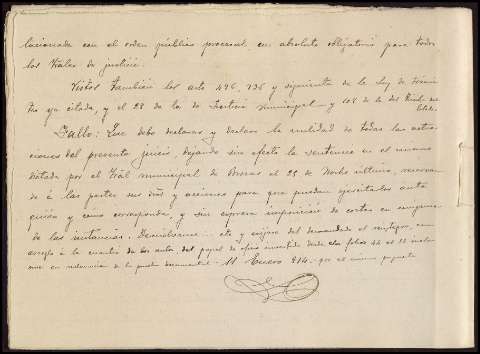 lacionada con el orden público procesal, en absoluto obligatorio para todos
los Trales de justicia.
Vistos también los arts 496, 736 y siguientes de la ley de
ya citada, y el 28 de la de Justicia municipal y 108 de la del
Fallo: Que debo declarar y declaro la nulidad de todas las actua
ciones del presente juicio, dejando sin efecto la sentencia en el mismo
dictada por el Tral municipal de el 25 de último, reservan
do á las partes sus dros y acciones para que puedan ejercitarlos ante
quien y como corresponda, y sin expresa imposición de costas en ninguna
de las instancias. Devuélvanse etc y exíjase del demandado el reintegro, con
arreglo á la cuantía de los autos, del papel de oficio invertido desde el folio 44 al inclu
sive en de la prueba documental. 11 Enero 914.